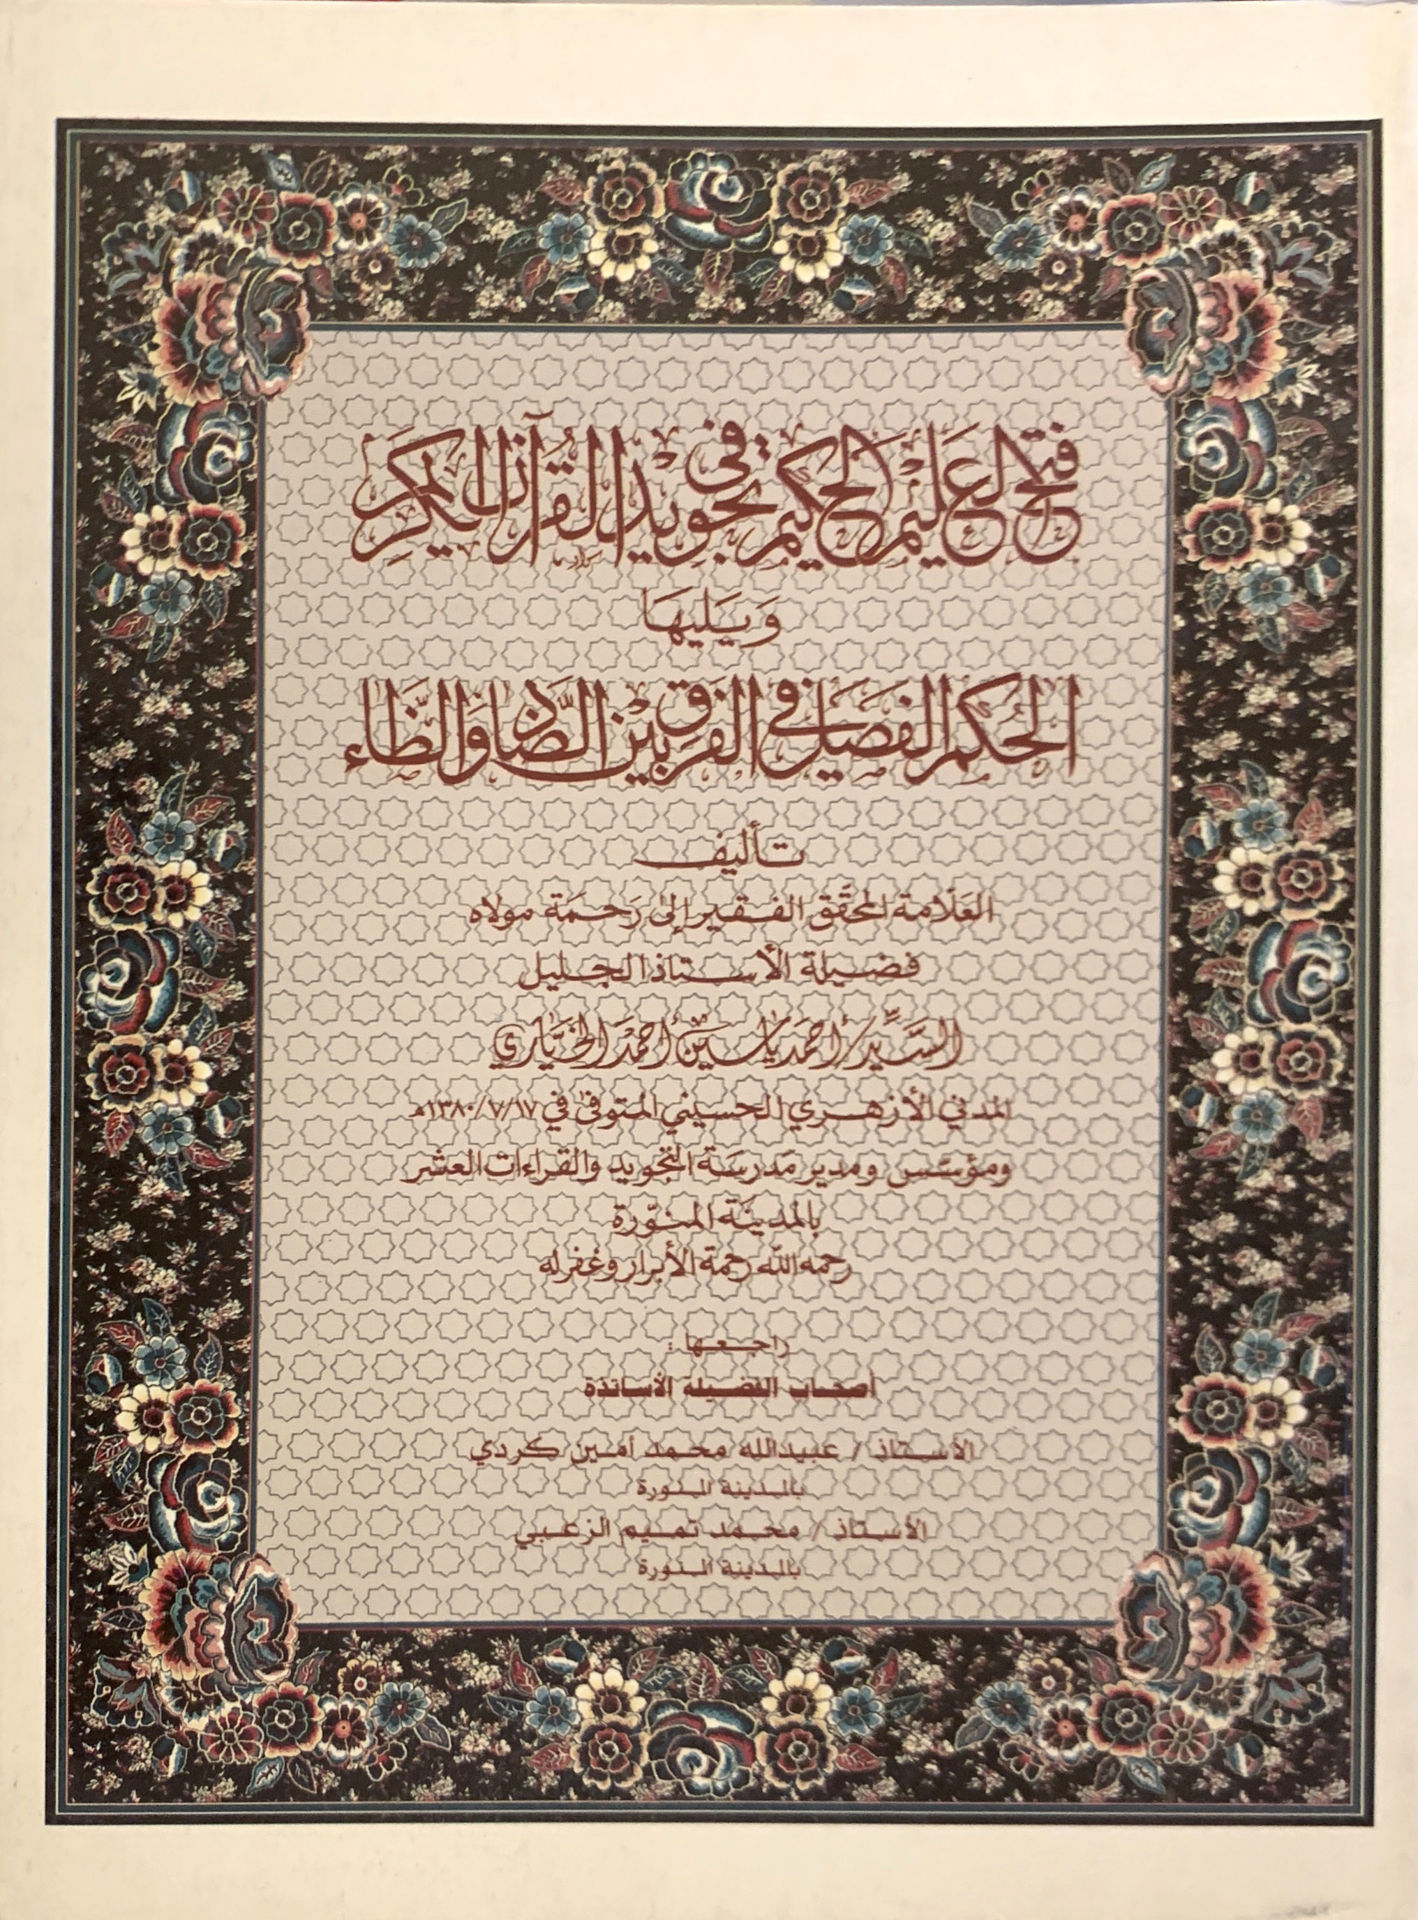 فتح العليم الحكيم في تجويد القرآن الكريم
وَيَليهَا
الحُكم الفَصَل في الفرق بَيْن الضَّاد وَالظَّاء
تأليف
العَلّامة المحقّق الفقير إلى رَحمَة مولاه
فضيلة الأستاذ الجليل
السَّيِّد / أحمَد ياسين أحمَد الخيَاري
المدني الأزهري الحسيني المتوفى في ١٣٨٠/٧/١٧هـ
ومؤسّس ومدير مَدرسَة التجويد والقراءات العشر
بالمدينَة المنوّرة
رحمه الله رحمة الأبرار وغفر له
راجعها :
أصحاب الفضيلة الأساتذة
الأستاذ / عبيدالله محمد أمين كردي
بالمدينة المنورة
الأستاذ / محمد تميم الزعبي
بالمدينة المنورة